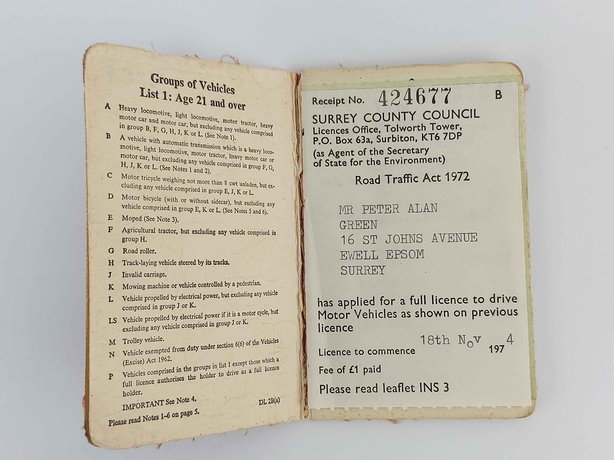 Groups of Vehicles
List 1: Age 21 and over
A Heavy locomotive, light locomotive, motor tractor, heavy
motor car and motor car, but excluding any vehicle comprised
in group B, F, G, H, J, K, or L. (See Note 1).
B A vehicle with automatic transmission which is a heavy loco-
motive, light locomotive, motor tractor, heavy motor car or
motor car, but excluding any vehicle comprised in group F, G,
H, J, K or L. (See Notes 1 and 2).
C Motor tricycle weighing not more than 8 cwt unladen, but ex-
cluding any vehicle comprised in group E, J, K or L.
D Motor bicycle (with or without sidecar), but excluding any
vehicle comprised in group E, K or L. (See Notes 5 and 6).
E Moped (See Note 3).
F Agricultural tractor, but excluding any vehicle comprised in
group H.
G Road roller.
H Track-laying vehicle steered by its tracks.
J Invalid carriage.
K Mowing machine or vehicle controlled by a pedestrian.
L Vehicle propelled by electrical power, but excluding any vehicle
comprised in group J or K.
LS Vehicle propelled by electrical power if it is a motor cycle, but
excluding any vehicle comprised in group J or K.
M Trolley vehicle.
N Vehicle exempted from duty under section 6(6) of the Vehicles
(Excise) Act 1962.
P Vehicles comprised in the groups in list 1 except those which a
full licence authorises the holder to drive as a full licence
holder.
IMPORTANT See Note 4.
DL 2B(a)
Please read Notes 1-6 on page 5.
Receipt No. 424677 B
SURREY COUNTY COUNCIL
Licences Office, Tolworth Tower,
P.O. Box 63a, Surbiton, KT6 7DP
(as Agent of the Secretary
of State for the Environment)
Road Traffic Act 1972
MR PETER ALAN
GREEN
16 ST JOHNS AVENUE
EWELL EPSOM
SURREY
has applied for a full licence to drive
Motor Vehicles as shown on previous
licence
18th Nov 4
Licence to commence 197
Fee of £1 paid
Please read leaflet INS 3